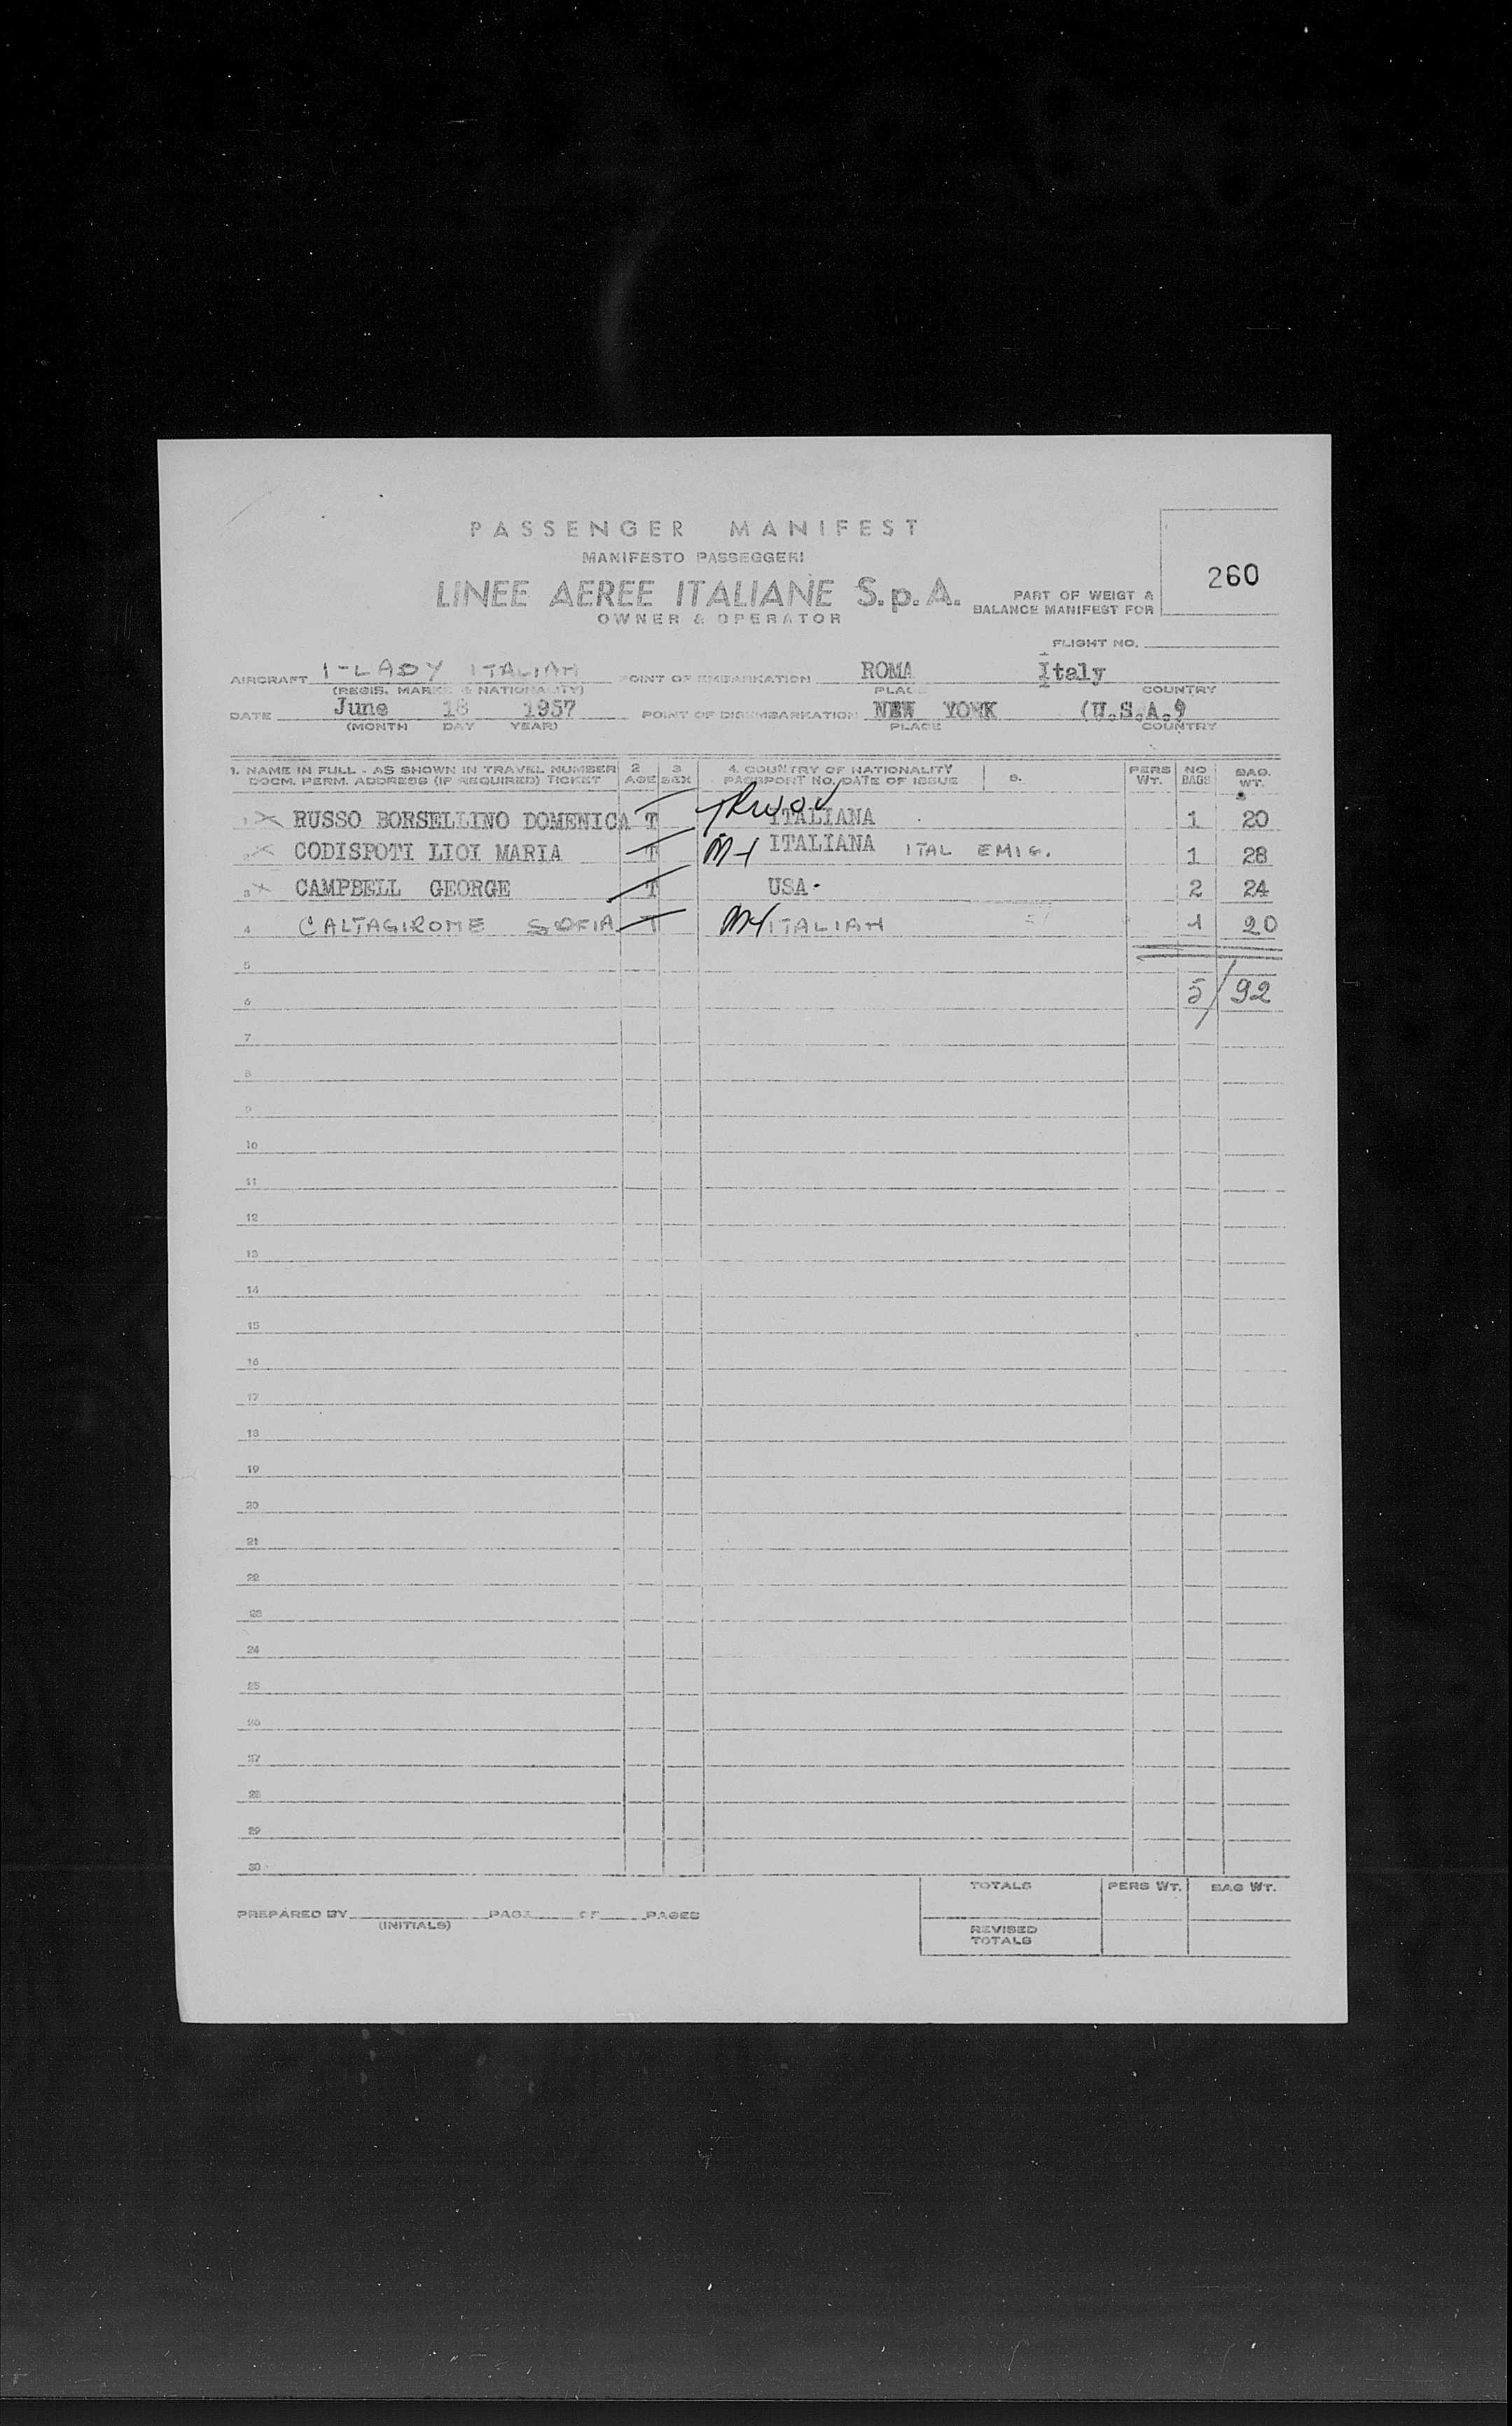 PASSENGER MANIFEST
MANIFESTO PASSEGGERI
LINEE AEREE ITALIANE S.p.A.
OWNER & OPERATOR
PART OF WEIGT &
BALANCE MANIFEST FOR
260
FLIGHT NO.
AIRCRAFT I-LADY ITALIAN POINT OF EMBARKATION ROMA Italy
(REGIS. MARKS & NATIONALITY) PLACE COUNTRY
DATE June 18 1957 POINT OF DISEMBARKATION NEW YORK (U.S.A.)
(MONTH DAY YEAR) PLACE COUNTRY
1. NAME IN FULL - AS SHOWN IN TRAVEL NUMBER 2 3 4. COUNTRY OF NATIONALITY 5. PERS NO BAG.
DOCM. PERM. ADDRESS (IF REQUIRED) TICKET AGE SEX PASSPORT NO./DATE OF ISSUE WT. BAGS WT.
1 X RUSSO BORSELLINO DOMENICA T ITALIANA 1 20
2 X CODISPOTI LIOI MARIA T ITALIANA ITAL EMIG. 1 28
3 X CAMPBELL GEORGE T USA- 2 24
4 CALTAGIRONE SOFIA T ITALIAN 1 20
5
6 5/92
7
8
9
10
11
12
13
14
15
16
17
18
19
20
21
22
23
24
25
26
27
28
29
30
TOTALS PERS WT. BAG WT.
PREPARED BY PAGE OF PAGES
(INITIALS)
REVISED
TOTALS